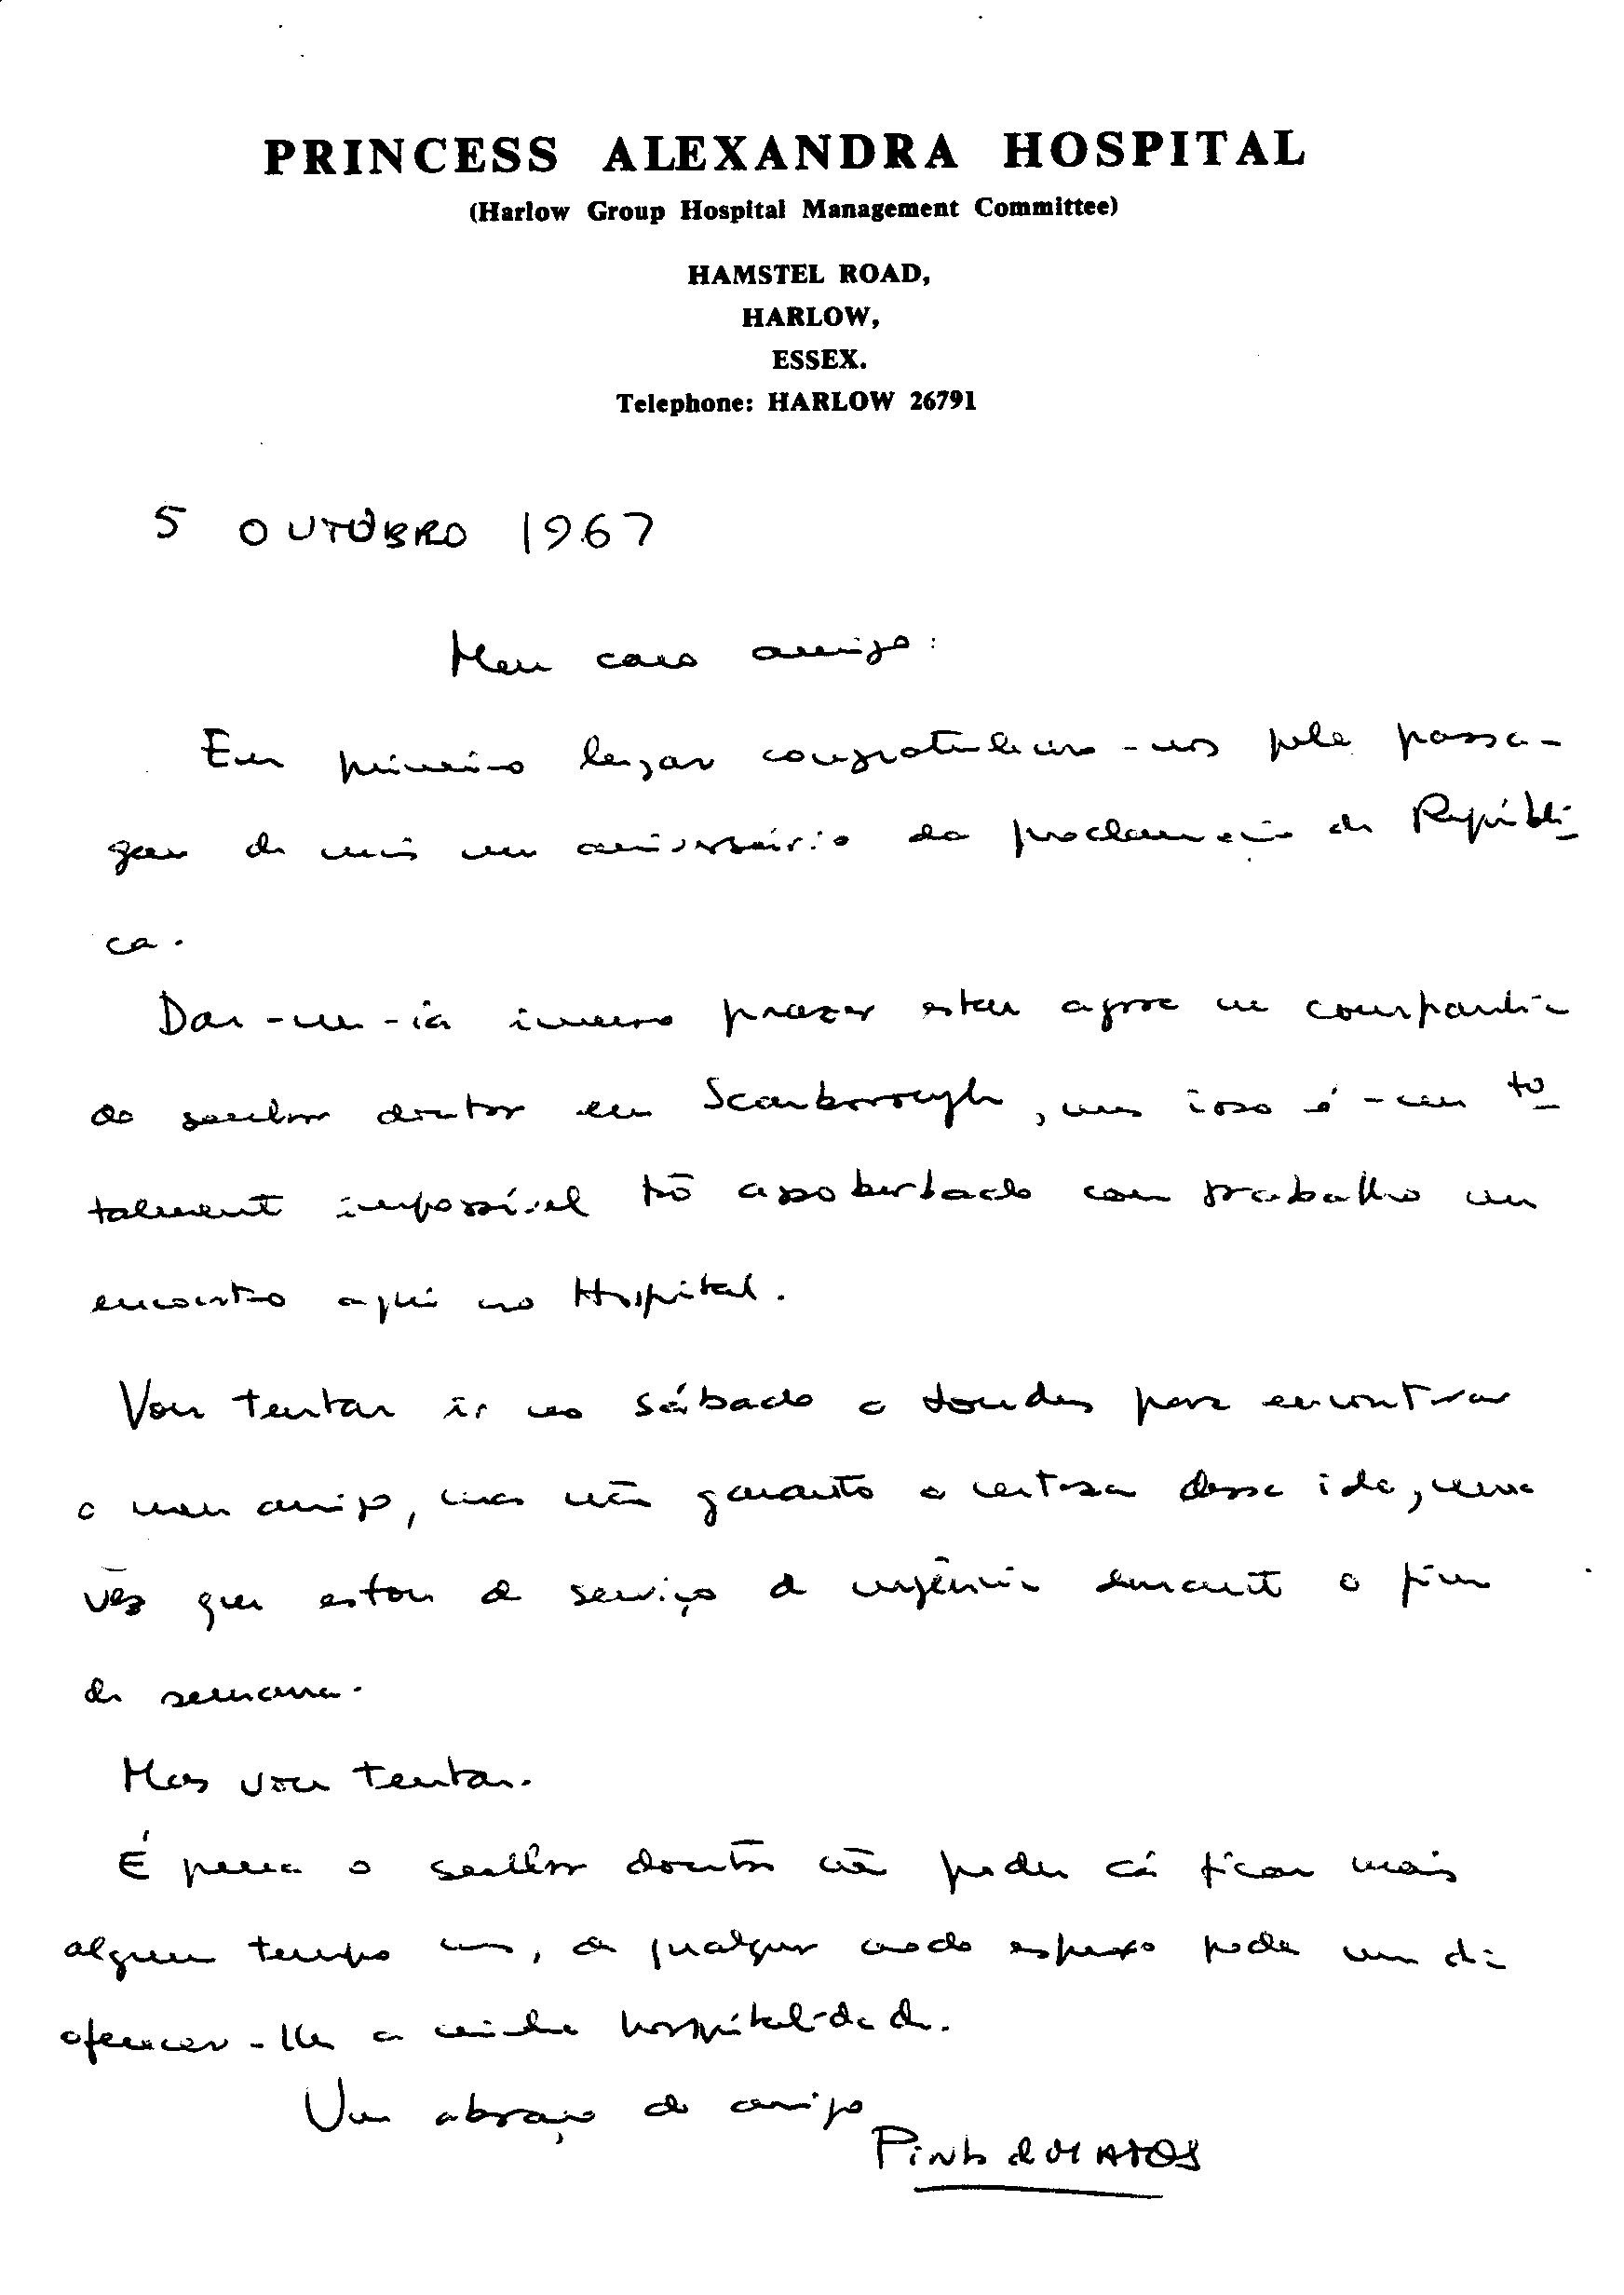 PRINCESS ALEXANDRA HOSPITAL
(Harlow Group Hospital Management Committee)
HAMSTEL ROAD,
HARLOW,
ESSEX.
Telephone: HARLOW 26791
5 OUTÔBRO 1967
Meu caro amigo:
Em primeiro lugar congratulemo-nos pela passa-
gem de mais um aniversário da proclamação da Repúbli-
ca.
Dar-me-ia imenso prazer estar agora na companhia
do senhor doutor em Scarborough, mas isso é-me to-
talmente impossível tão assoberbado com trabalho me
encontro aqui no Hospital.
Vou tentar ir no sábado a Londres para encontrar
o meu amigo, mas não garanto a certeza dessa ida, uma
vêz que estou de serviço de urgência durante o fim
de semana.
Mas vou tentar.
É pena o senhor doutor não poder cá ficar mais
algum tempo mas, de qualquer modo espero poder um dia
oferecer-lhe a minha hospitalidade.
Um abraço do amigo
Pinto de MATOS